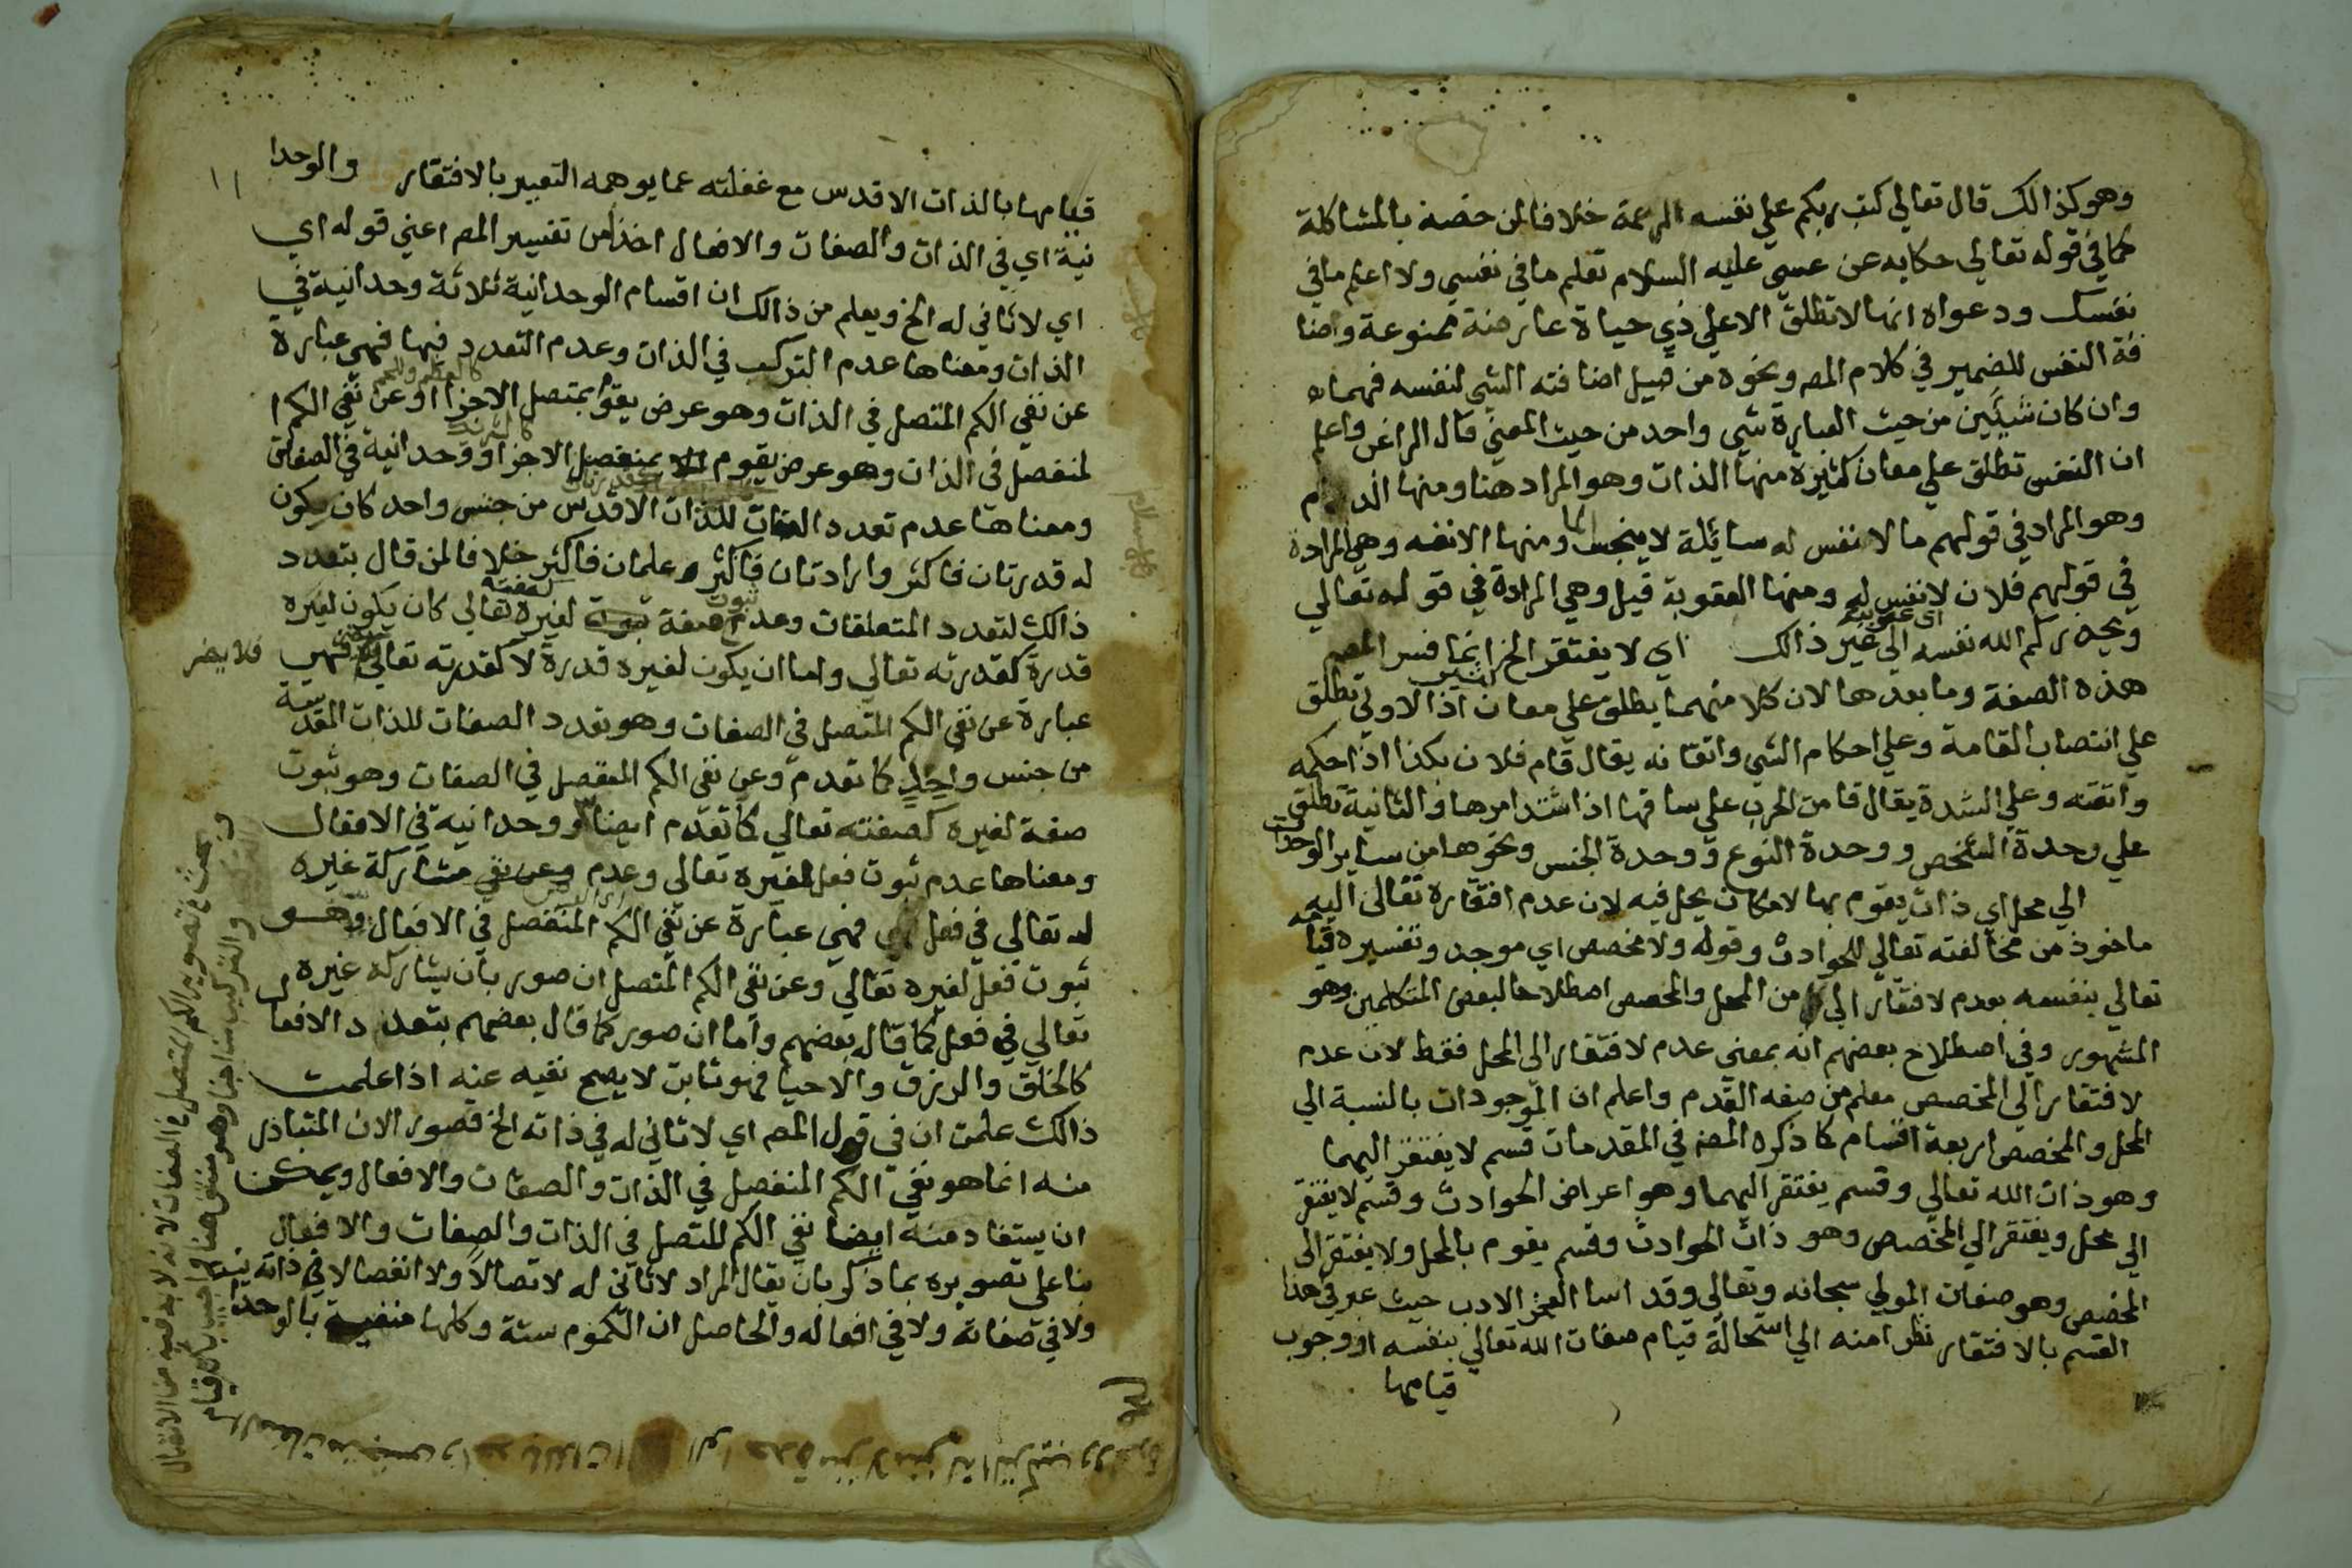 وهو كذالك قال تعالي كتب ربكم علي نفسه الرحمة خلافا لمن خصه بالمشاكلة
كما في قوله تعالي حكايه عن عسي عليه السلام تعلم ما في نفسي ولا اعلم ما في
نفسك ودعواه انها لا تطلق الا علي ذي حياة عارضة ممنوعة واضا
فة النفس للضمير في كلام المص ونحوه من قبيل اضافته الشي لنفسه فهما
وان كان شيئين من حيث العبارة شي واحد من حيث المعني قال الراغب واعلم
ان النفس تطلق علي معان كثيرة منها الذات وهو المراد هنا ومنها الدم
وهو المراد في قولهم ما لا نفس له سائلة لا ينجس الما ومنها الانفه وهي المرادة
في قولهم فلان لا نفس له ومنها العقوبة قيل وهي المرادة في قوله تعالي
ويحذركم الله نفسه اي عقوبته الي غير ذالك اي لا يفتقر الخ انما فسر المص
هذه الصفة وما بعدها لان كلا منهما يطلق علي معان اذ الاولي تطلق
علي انتصاب القامة وعلي احكام الشي واتقانه يقال قام فلان بكذا اذا احكمه
واتقنه وعلي الشدة يقال قامت الحرب علي ساقها اذا اشتد امرها والثانية تطلق
علي وحدة الشخص ووحدة النوع ووحدة الجنس ونحوها من ساير الوحدات
الي محل اي ذات يقوم بها لا مكان يحل فيه لان عدم افتقاره تعالي اليه
ماخوذ من مخالفته تعالي للحوادث وقوله ولا مخصص اي موجد وتفسيره قيامه
تعالي بنفسه بعدم لافتقار الي من المحل والمخصص اصطلاحا لبعض المتكلمين وهو
المشهور وفي اصطلاح بعضهم انه بمعني عدم لافتقار الي المحل فقط لان عدم
لافتقار الي المخصص معلم من صفه القدم واعلم ان الموجودات بالنسبة الي
المحل والمخصص اربعة اقسام كما ذكره المص في المقدمات قسم لا يفتقر اليهما
وهو ذات الله تعالي وقسم يفتقر اليهما وهو اعراض الحوادث وقسم لا يفتقر
الي محل ويفتقر الي المخصص وهو ذات الحوادث وقسم يقوم بالمحل ولا يفتقر الي
المخصص وهو صفات المولي سبحانه وتعالي وقد اسا الفخر الادب حيث عبر في هذا
القسم بالافتقار نظرا منه الي استحالة قيام صفات الله تعالي بنفسه او وجوب
قيامها
١١
قيامها بالذات الاقدس مع غفلته عما يوهمه التعبير بالافتقار والوحدا
نية اي في الذات والصفات والافعال اخذا من تفسير المص اعني قوله اي
اي لا ثاني له الخ ويعلم من ذالك ان اقسام الوحدانية ثلاثة وحدانية في
الذات ومعناها عدم التركب في الذات وعدم التعدد فيها فهي عبارة
عن نفي الكم المتصل في الذات وهو عرض يقوم بمتصل الاجزا او عن نفي الكم ا
لمنفصل في الذات وهو عرض يقوم بمنفصل الاجزا ووحدانية في الصفات
ومعناها عدم تعدد الصفات للذات الاقدس من جنس واحد كان يكون
له قدرتان فاكثر وارادتان فاكثر وعلمان فاكثر خلافا لمن قال بتعدد
ذالك لتعدد المتعلقات وعدم ثبوت صفة لغيره كصفته تعالي كان يكون لغيره
قدرة كقدرته تعالي واما ان يكون لغيره قدرة لا كقدرته تعالي فلا يضر فهي
عبارة عن نفي الكم المتصل في الصفات وهو تعدد الصفات للذات المقدسة
من جنس واحد كما تقدم وعن نفي الكم المنفصل في الصفات وهو ثبوت
صفة لغيره كصفته تعالي كما تقدم ايضا ووحدانية في الافعال
ومعناها عدم ثبوت فعل لغيره تعالي وعدم وعن نفي مشاركة غيره
له تعالي في فعل فهي عبارة عن نفي الكم المنفصل في الافعال وهو
ثبوت فعل لغيره تعالي وعن نفي الكم المتصل ان صور بان يشاركه غيره
تعالي في فعل كما قاله بعضهم واما ان صور كما قال بعضهم بتعدد الافعال
كالخلق والرزق والاحيا فهو ثابت لا يصح نفيه عنه اذا علمت
ذالك علمت ان في قول المص اي لا ثاني له في ذاته الخ قصور الان المتبادر
منه انما هو نفي الكم المنفصل في الذات والصفات والافعال ويمكن
ان يستفاد منه ايضا نفي الكم المتصل في الذات والصفات والافعال
بنا علي تصويره بما ذكر بان يقال المراد لا ثاني له لا تصالا ولا انفصالا في ذاته
ولا في صفاته ولا في افعاله والحاصل ان الكموم ستة وكلها منفية بالوحدا
فلا يضر